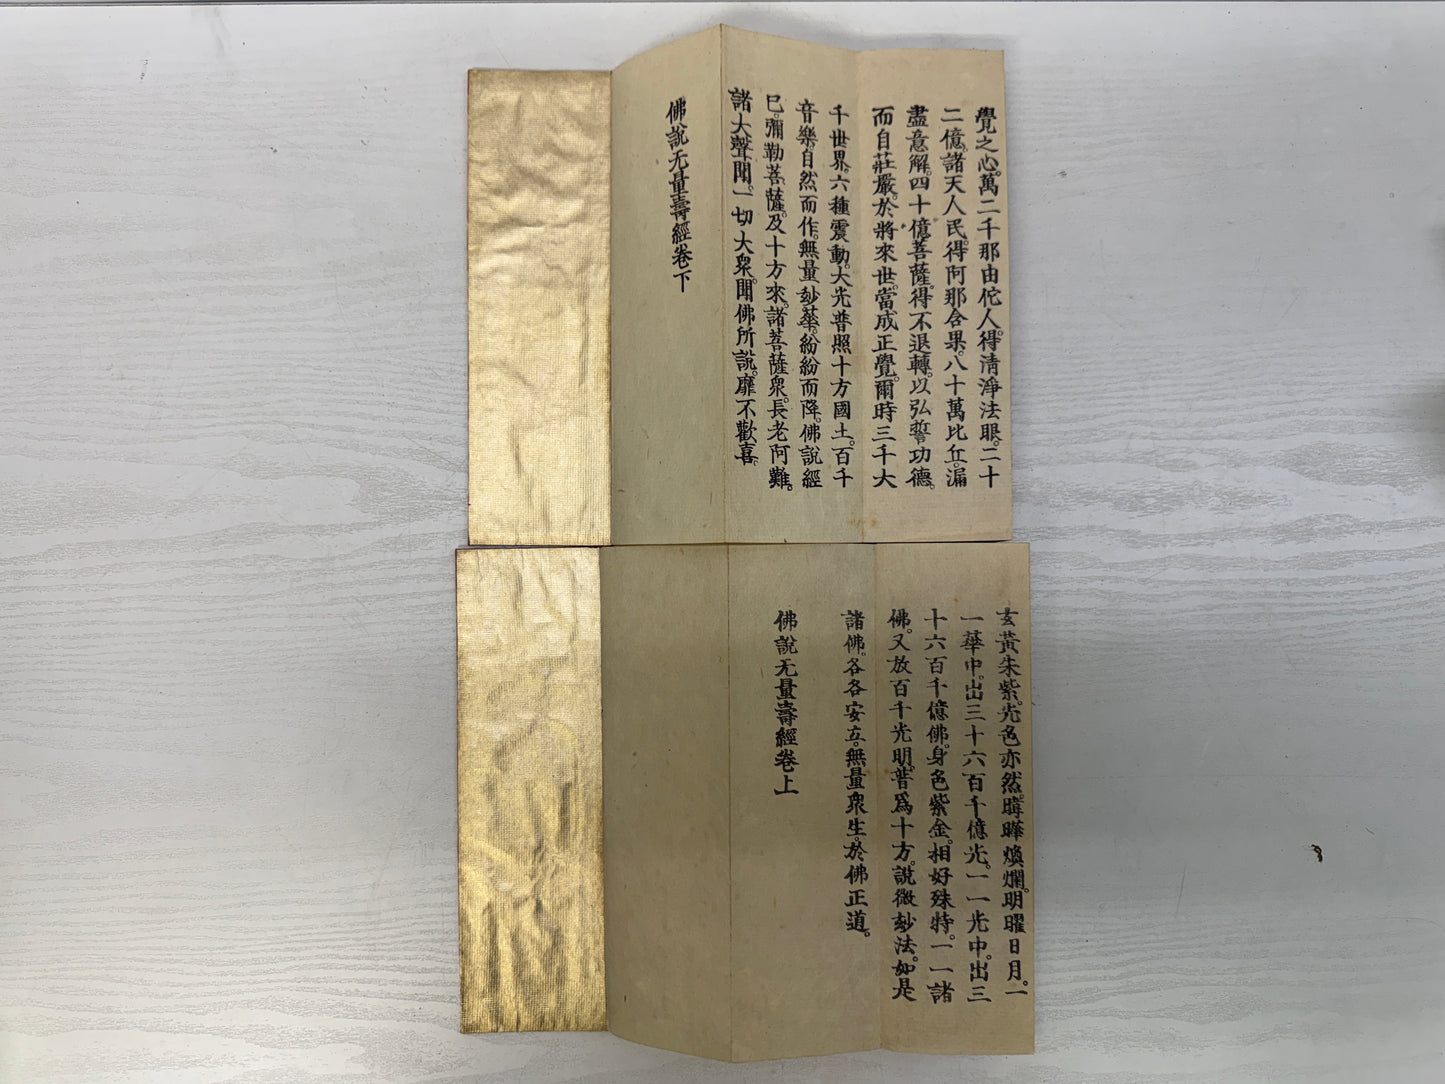 覺之心。萬二千那由佗人。得清淨法眼。二十
二億。諸天人民。得阿那含果。八十萬比丘。漏
盡意解。四十億菩薩。得不退轉。以弘誓功德。
而自莊嚴。於將來世。當成正覺。爾時三千大
千世界。六種震動。大光普照十方國土。百千
音樂。自然而作。無量玅華。紛紛而降。佛說經
已。彌勒菩薩。及十方來。諸菩薩衆。長老阿難。
諸大聲聞。一切大衆。聞佛所說。靡不歡喜。
佛說无量壽經卷下
玄黃朱紫。光色亦然。暐曄煥爛。明曜日月。一
一華中。出三十六百千億光。一一光中。出三
十六百千億佛。身色紫金。相好殊特。一一諸
佛。又放百千光明。普爲十方。說微玅法。如是
諸佛。各各安立。無量衆生。於佛正道。
佛說无量壽經卷上